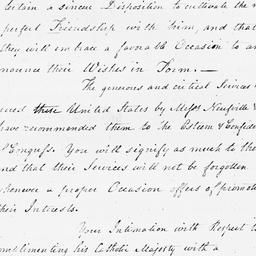 tertain a sincere Disposition to cultivate the m
perfect Friendship with him, and that
they will embrace a favorable Occasion to an
nounce their Wishes in Form. —
The generous and critical Services
dered these United States by Messrs Neufville &
have recommended them to the Esteem & Confiden
of Congress. You will signify as much to the
and that their Services will not be forgotten
whenever a proper Occasion offers of promoti
their Interests.
Your Intimation with Respect to
complimenting his Catholic Majesty with a